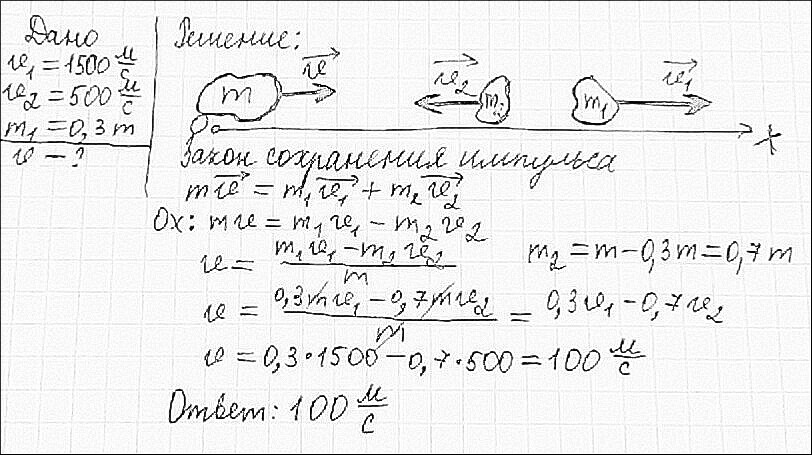 Дано
υ₁ = 1500 м/с
υ₂ = 500 м/с
m₁ = 0,3 m
υ - ?
Решение:
m υ⃗ υ⃗₂ m₂ m₁ υ⃗₁
0 x
Закон сохранения импульса
mυ⃗ = m₁υ⃗₁ + m₂υ⃗₂
Ox: mυ = m₁υ₁ - m₂υ₂
υ = (m₁υ₁ - m₂υ₂)/m m₂ = m - 0,3m = 0,7m
υ = (0,3mυ₁ - 0,7mυ₂)/m = 0,3υ₁ - 0,7υ₂
υ = 0,3·1500 - 0,7·500 = 100 м/с
Ответ: 100 м/с